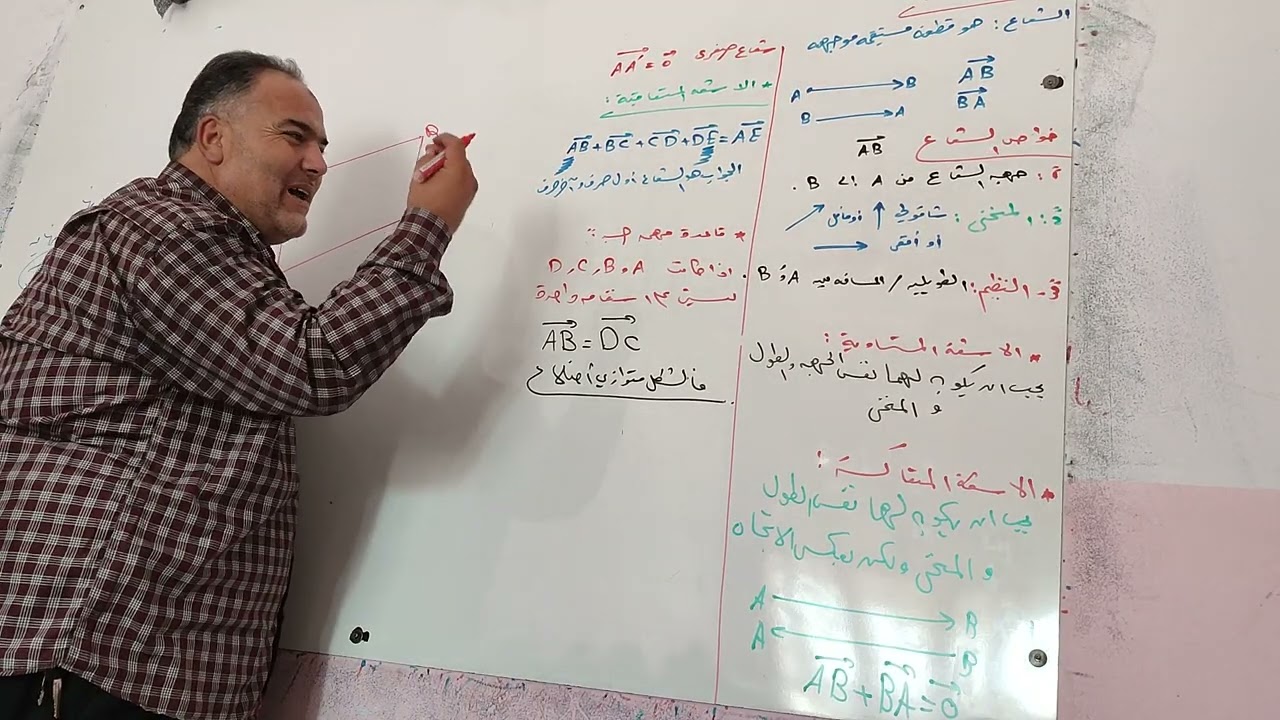 الشعاع: هو قطعة مستقيمة موجهة
A B AB
B A BA
خواص الشعاع AB
1: جهة الشعاع من A إلى B.
2: المنحى: شاقولي أو مائل
أو أفقي
3- النظيم: الطويلة / المسافة بين A و B.
* الاشعة المتساوية:
يجب ان يكون لهما نفس الجهة والطول
و المنحى
* الاشعة المتعاكسة:
يجب ان يكون لهما نفس الطول
و المنحى ولكن بعكس الاتجاه
A B
A B
AB + BA = 0
شعاع صفري AA = 0
* الاشعة المتتابعة:
AB + BC + CD + DE = AE
الجواب هو الشعاع أول حرف و آخر حرف
* قاعدة مهمة
اذا كانت A, B, C, D
ليست على استقامة واحدة
AB = DC
فالشكل متوازي أضلاع